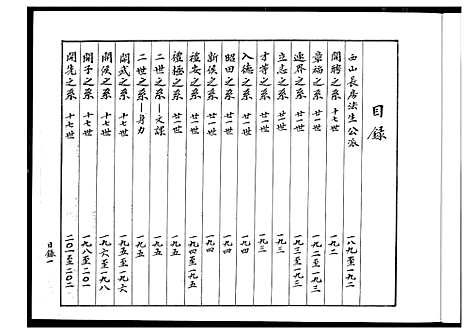 目錄
西山長房法生公派 一八九至一九二
開聘之系 十七世 一九二
章福之系 廿一世 一九二至一九三
連界之系 廿一世 一九三至一九五
立志之系 廿一世 一九三
才等之系 廿一世 一九三
入德之系 廿一世 一九四
昭田之系 廿一世 一九四
新侯之系 廿一世 一九四
禮安之系 廿一世 一九四至一九五
禮極之系 廿一世 一九五
二世之系—文課 一九五
二世之系—身力 一九五
開武之系 十七世 一九五至一九六
開侯之系 十七世 一九六至一九八
開子之系 十七世 一九八至二〇一
開先之系 十七世 二〇一至二〇二
目錄一